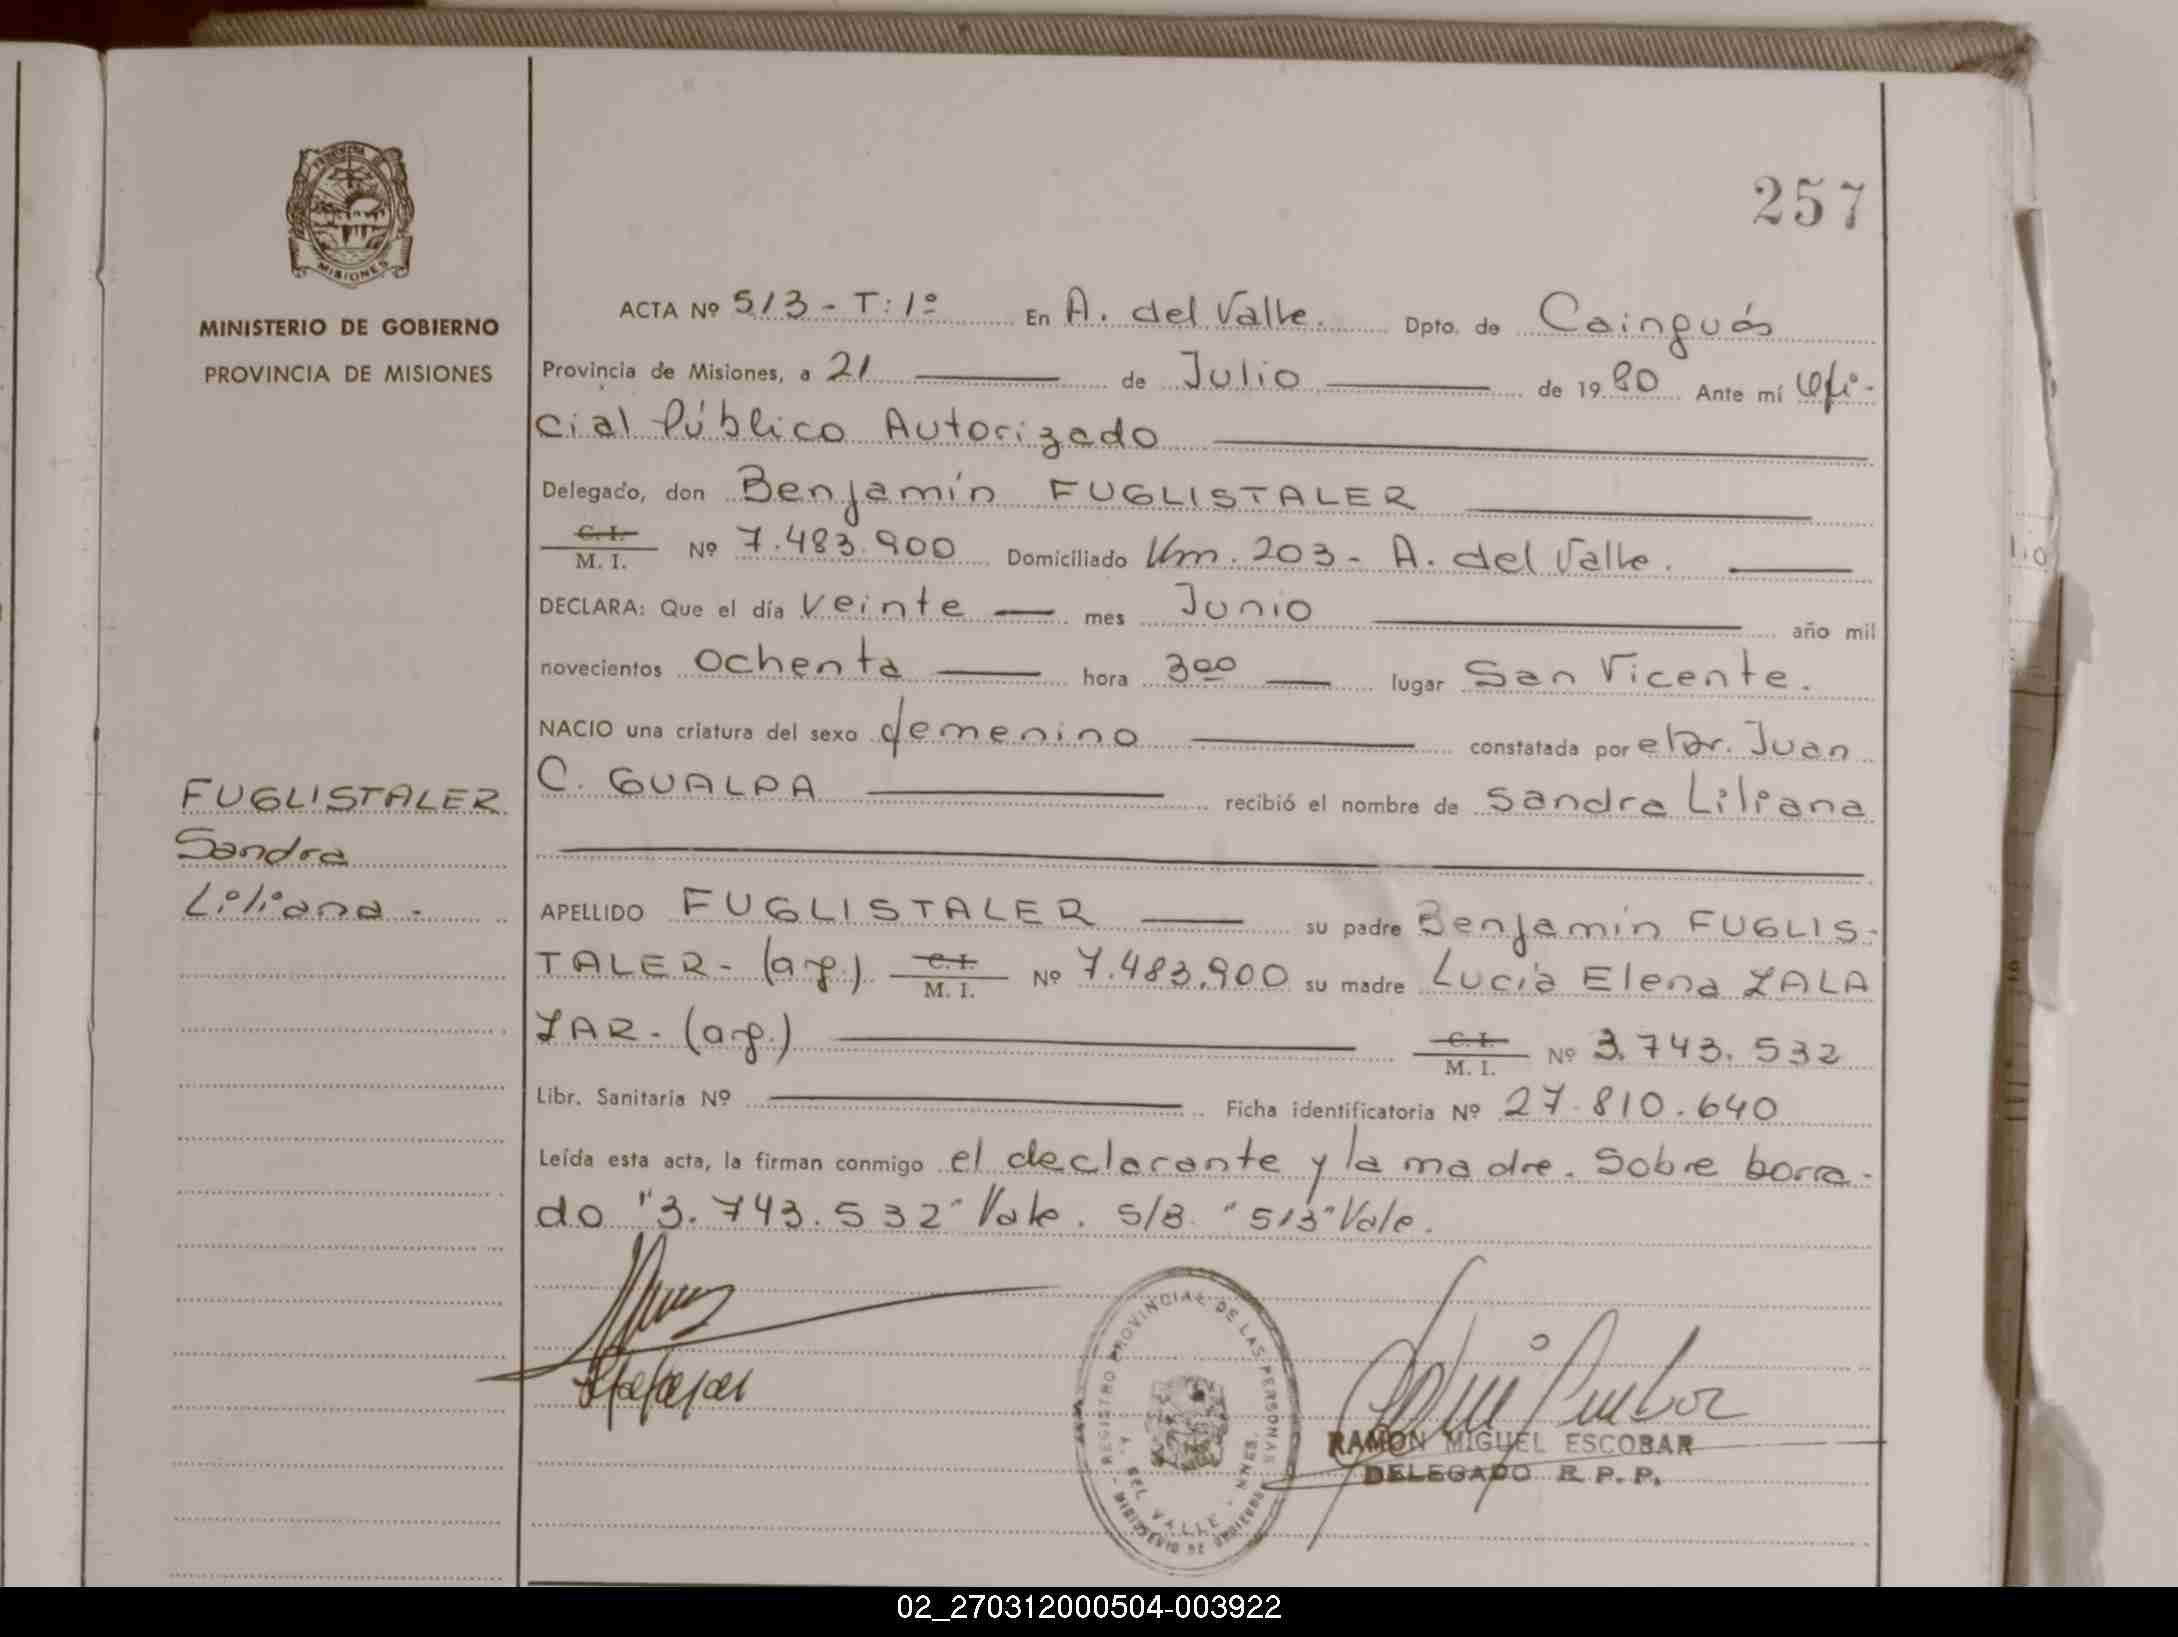 257
PROVINCIA DE
MISIONES
MINISTERIO DE GOBIERNO
PROVINCIA DE MISIONES
ACTA Nº 513 - T: 1º En A. del Valle. Dpto. de Cainguás
Provincia de Misiones, a 21 de Julio de 1980 Ante mí Ofi-
cial Público Autorizado
Delegado, don Benjamín FUGLISTALER
C. I.
M. I. Nº 7.483.900 Domiciliado Km. 203 - A. del Valle.
DECLARA: Que el día veinte mes Junio año mil
novecientos ochenta hora 3 00 lugar San Vicente.
NACIO una criatura del sexo femenino constatada por el Dr. Juan
C. GUALPA recibió el nombre de Sandra Liliana
FUGLISTALER
Sandra
Liliana -
APELLIDO FUGLISTALER su padre Benjamín FUGLIS-
TALER - (arg.) C. I. M. I. Nº 7.483.900 su madre Lucía Elena ZALA
ZAR - (arg.) C. I. M. I. Nº 3.743.532
Libr. Sanitaria Nº Ficha identificatoria Nº 27.810.640
Leída esta acta, la firman conmigo el declarante y la madre. Sobre borra-
do "3.743.532" Vale. S/B. "513" Vale.
REGISTRO PROVINCIAL DE LAS PERSONAS
A. DEL VALLE - MNES.
MINISTERIO DE GOBIERNO
RAMON MIGUEL ESCOBAR
DELEGADO R. P. P.
02_270312000504-003922